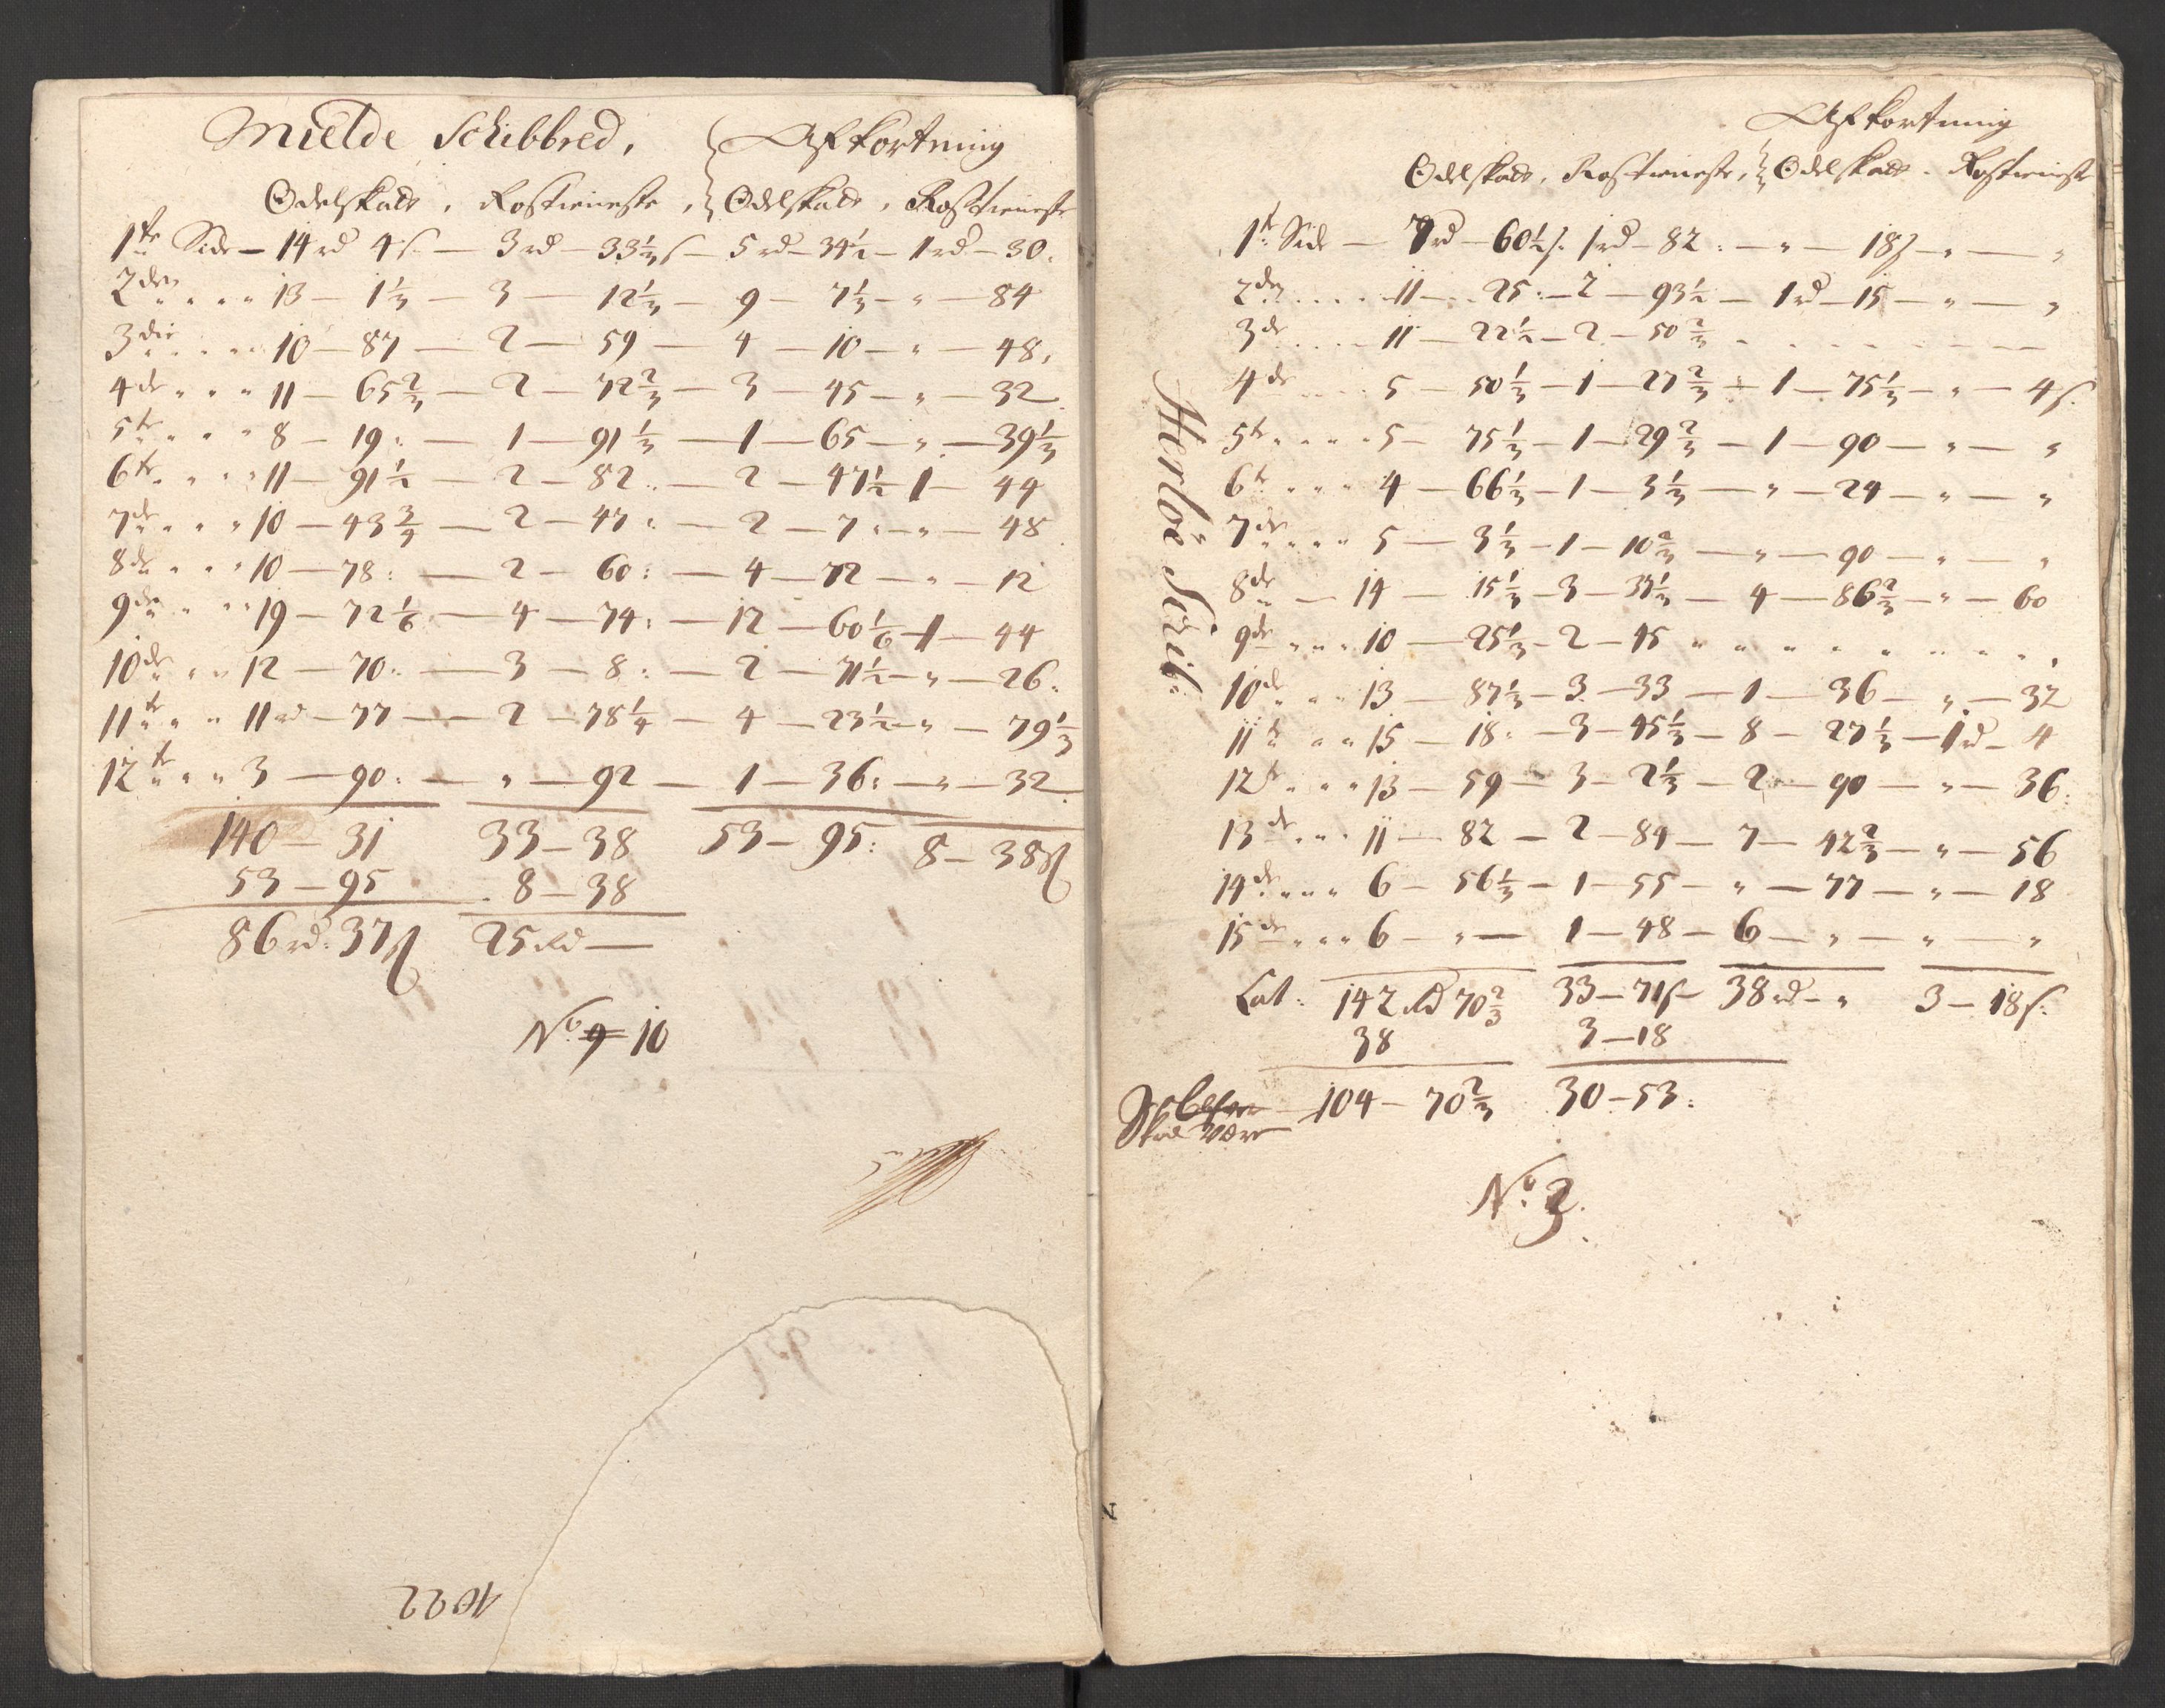 Mielde Schibbred, Afkortning
Odelskatt, Rostieneste, Odelskatt, Rostieneste
1te Side — 14 rd 4 s — 3 rd — 33 1/3 s — 5 rd — 34 1/2 — 1 rd — 30.
2den " " " 13 — 1 1/3 — 3 — 12 1/3 — 9 — 7 1/3 — " — 84
3die " " " 10 — 87 — 2 — 59 — 4 — 10 — " — 48,
4de " " " 11 — 65 2/3 — 2 — 72 2/3 — 3 — 45 — " — 32
5te " " " 8 — 19 : — 1 — 91 1/3 — 1 — 65 — " — 39 1/3
6te " " " 11 — 91 1/2 — 2 — 82 : — 2 — 47 1/2 1 — 44
7de " " " 10 — 43 3/4 — 2 — 47 : — 2 — 7 : — " — 48
8de " " " 10 — 78 : — 2 — 60 : — 4 — 72 — " — 12
9de " " " 19 — 72 1/6 — 4 — 74 : — 12 — 60 1/6 — 1 — 44
10de " " 12 — 70 : — 3 — 8 : — 2 — 71 1/2 — " — 26 :
11te " " 11 rd — 77 — 2 — 78 1/4 — 4 — 23 1/2 — " — 79 1/3
12te " " 3 — 90 : — " — 92 — 1 — 36 : — " — 32
140 — 31 33 — 38 53 — 95 : 8 — 38 s
53 — 95 8 — 38
86 rd : 37 s 25 rd —
No 9 10
4022
Afkortning
Odelskatt, Rostieneste, Odelskatt. Rostieneste
Herlöe Schib:
1te Side — 9 rd — 60 1/2 s. 1 rd — 82 : — " — 18 s — " — "
2den .... 11 — 25 : — 2 — 93 1/2 — 1 rd — 15 — " — "
3de .... 11 — 22 1/2 — 2 — 50 2/3
4de .... 5 — 50 1/3 — 1 — 27 2/3 — 1 — 75 1/3 — " — 4 s.
5te " " " 5 — 75 1/3 — 1 — 29 2/3 — 1 — 90 — " — "
6te " " " 4 — 66 1/3 — 1 — 3 1/3 — " — 24 — " — "
7de " " " 5 — 3 1/3 — 1 — 10 2/3 — " — 90 — " — "
8de — 14 — 15 1/3 — 3 — 37 1/3 — 4 — 86 2/3 — " — 60
9de " " " 10 — 25 1/3 — 2 — 45 " " " " " " " "
10de " " 13 — 87 1/3 — 3 — 33 — 1 — 36 — " — 32
11te " " 15 — 18 : — 3 — 45 1/3 — 8 — 27 1/3 — 1 rd — 4
12te " " " 13 — 59 — 3 — 2 1/3 — 2 — 90 — " — 36 :
13de " " " 11 — 82 — 2 — 84 — 7 — 42 2/3 — " — 56
14de " " " 6 — 56 1/3 — 1 — 55 — " — 77 — " — 18
15de " " " 6 — " — 1 — 48 — 6 — " — " — "
Lat : 142 rd 70 2/3 33 — 71 s — 38 rd — " 3 — 18 s.
38 3 — 18
104 — 70 2/3 30 — 53 :
Skal Være
No. 3.